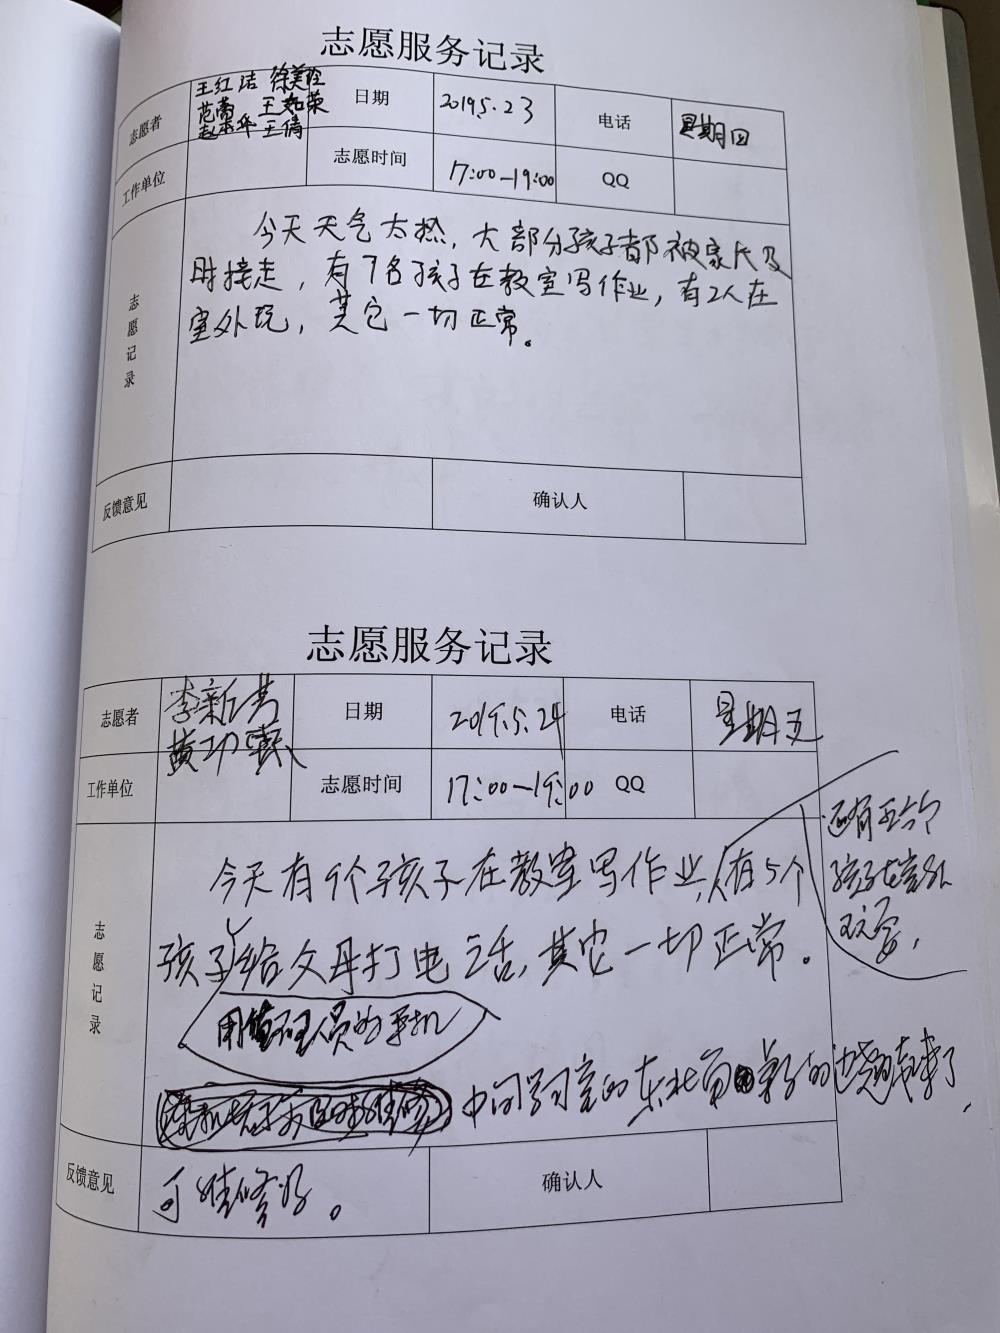 志愿服务记录
志愿者
王红洁
范蕾 王如荣
王倩
日期
2019.5.23
电话
星期四
工作单位
志愿时间
17:00-19:00
QQ
志愿记录
今天天气太热，大部分孩子都被家长及
时接走，有7名孩子在教室写作业，有2人在
室外玩，其它一切正常。
反馈意见
确认人
志愿服务记录
志愿者
李新芳
日期
2019.5.24
电话
星期五
工作单位
志愿时间
17:00-19:00
QQ
志愿记录
今天有9个孩子在教室写作业，有5个
孩子给父母打电话，其它一切正常。
用管理员的手机
还有五六个
孩子在室外
玩，
中间学习室的东北角桌子的边翘起来了，
反馈意见
可维修好。
确认人